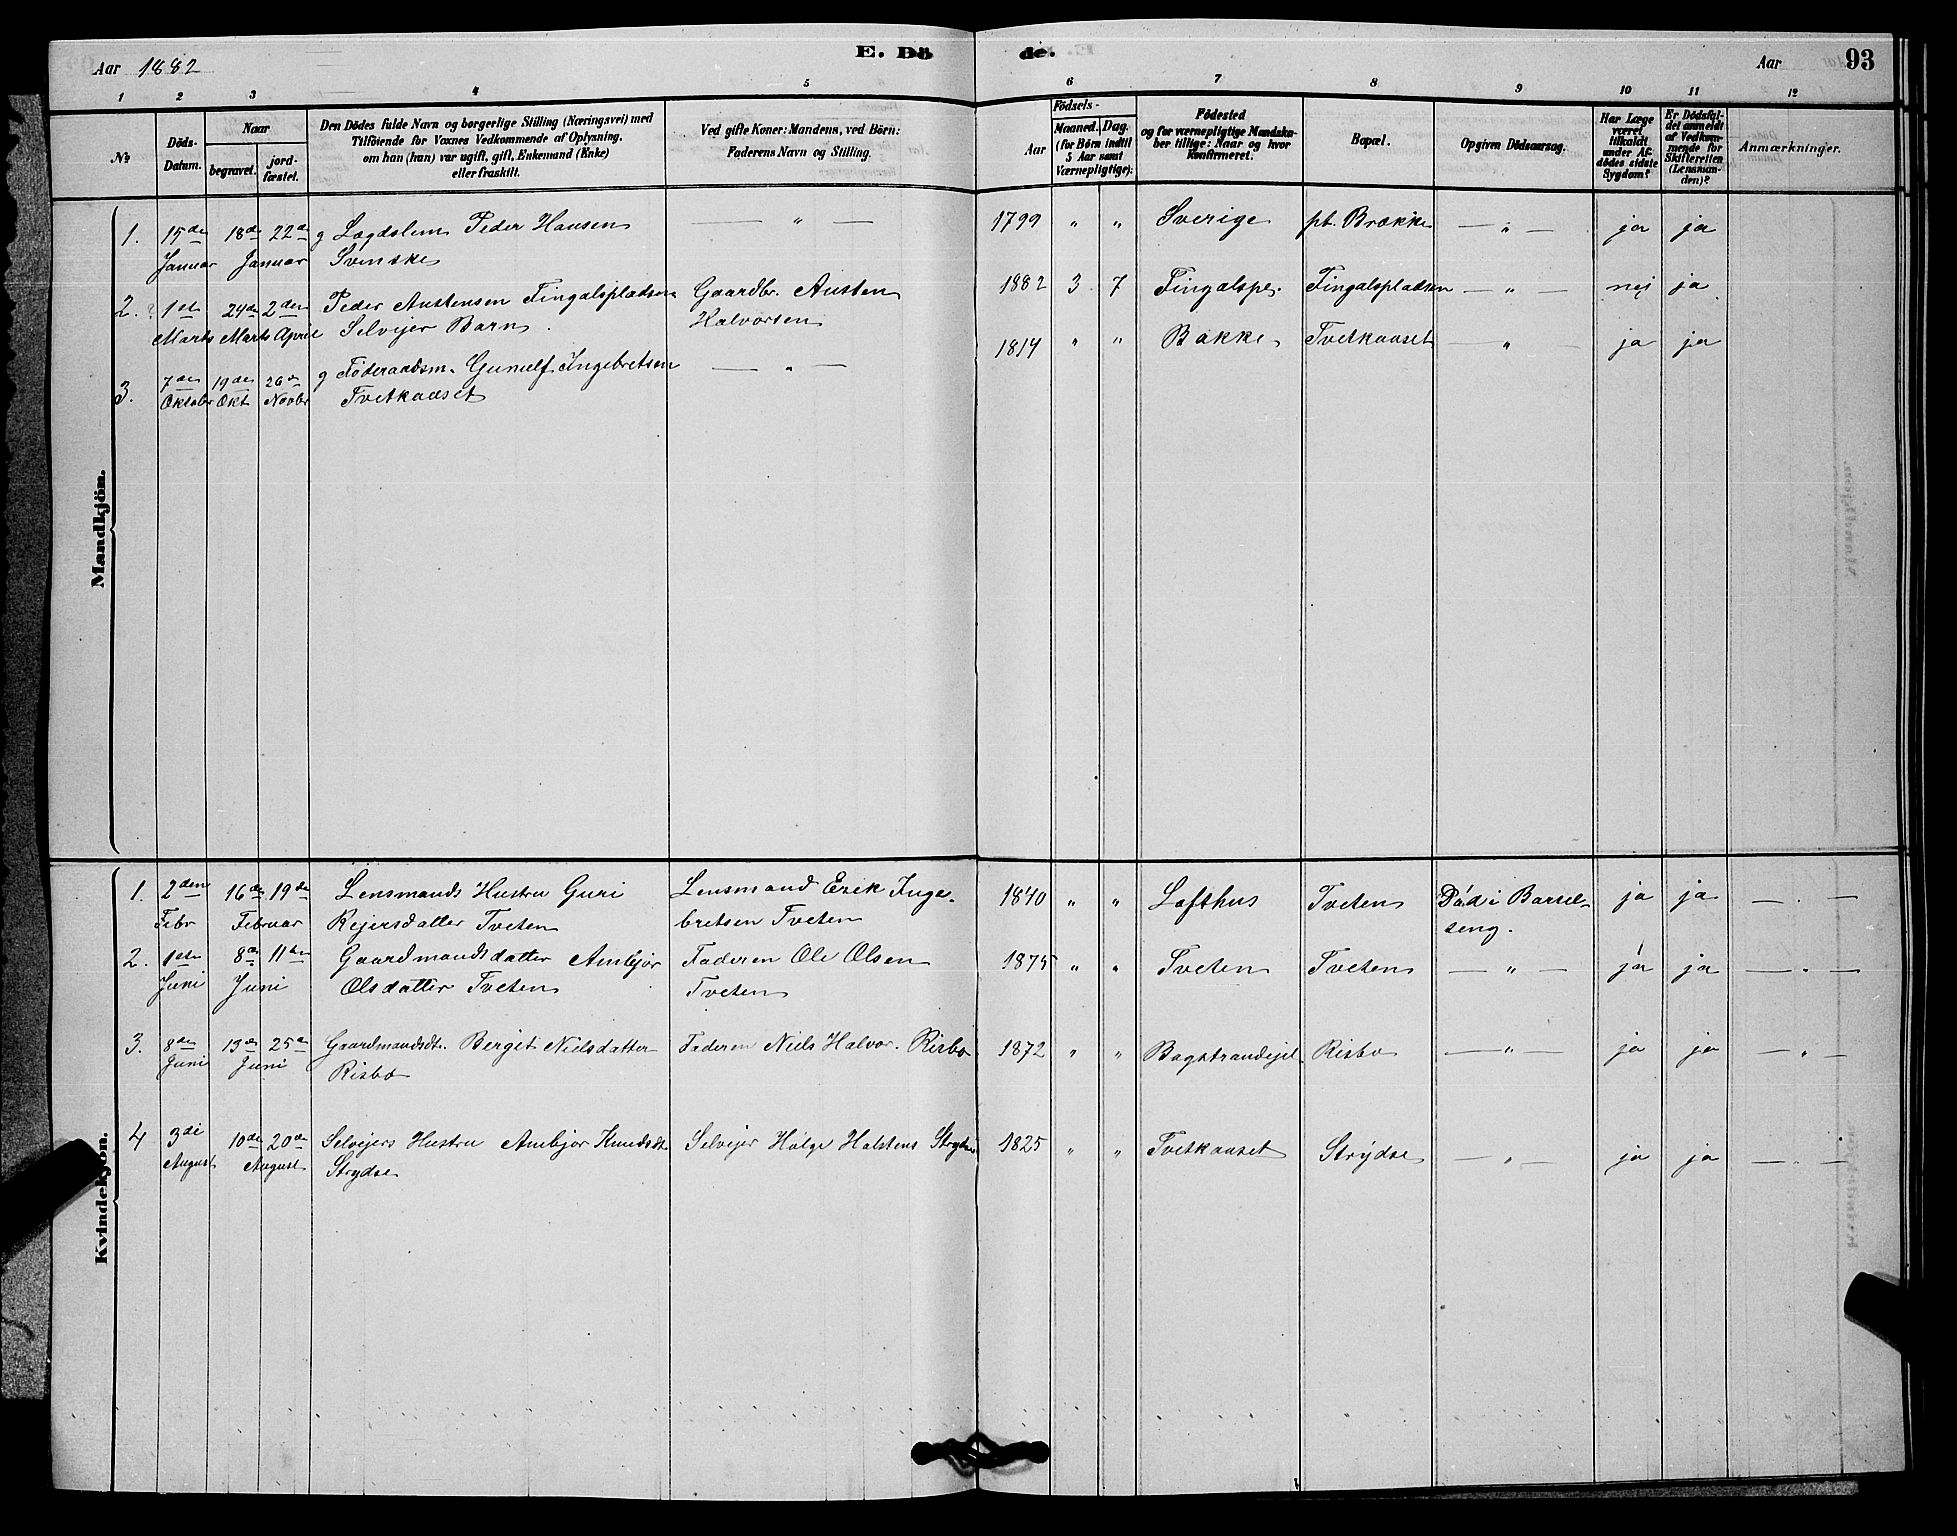 Aar 1882
E. Dö
de.
Aar
93
1 2 3 4 5 6 7 8 9 10 11 12
No
Döds-
Datum.
Naar
begravet.
jord-
fæstet.
Den Dödes fulde Navn og borgerlige Stilling (Næringsvei) med
Tilföiende for Voxnes Vedkommende af Oplysning,
om han (hun) var ugift, gift, Enkemand (Enke)
eller fraskilt.
Ved gifte Koner: Mandens, ved Börn:
Faderens Navn og Stilling.
Födsels-
Aar
Maaned. Dag.
(for Börn indtil
5 Aar samt
Værnepligtige):
Födested
og for værnepligtige Mandska-
ber tillige: Naar og hvor
Konfirmeret.
Bopæl.
Opgiven Dödsaarsag.
Har Læge
været
tilkaldt
under Af-
dödes sidste
Sygdom?
Er Dödsfal-
det anmeldt
af Vedkom-
mende for
Skifteretten
(Lensman-
den)?
Anmærkninger.
Mandkjön.
1. 15de 18de 22de g Lægdslem Peder Hansen — " — 1799 " " Sverige pt. Brække — " — ja ja
Januar Januar Svenske
2. 1ste 24de 2den Peder Austensen Tingalspladsen Gaardbr. Austen 1882 3 7 Tingalspl. Tingalspladsen — " — nej ja
Marts Marts April Selvejer Barn. Halvorsen
3. 7de 19de 26de g Föderaadsm. Gunulf Ingebretsen — " — 1814 " " Bakke Tvetkaaset — " — ja ja
Oktobr Okt Novbr Tvetkaaset
Kvindekjön.
1. 2den 16de 19de Lensmands Hustru Guri Lensmand Erik Inge- 1840 " " Lofthus Tveten Död i Barsel- ja ja — . —
Febr Februar Rejersdatter Tveten bretsen Tveten seng.
2. 1ste 8de 11te Gaardmandsdatter Ambjør Faderen Ole Olsen 1875 " " Tveten Tveten — " — ja ja — " —
Juni Juni Olsdatter Tveten Tveten
3. 8de 19de 25de Gaardmandsdt. Bergit Nielsdatter Faderen Niels Halvor. Risbo 1872 " " Risbo — " — ja ja — " —
Juni Juni Risbo
4 3di 10de 20de Selvejers Hustru Ambjør Knudsdt. Selvejer Hølge Halstens Strydse 1825 " " Tvetkaaset Strydse — " — ja ja — " —
August August Strydse